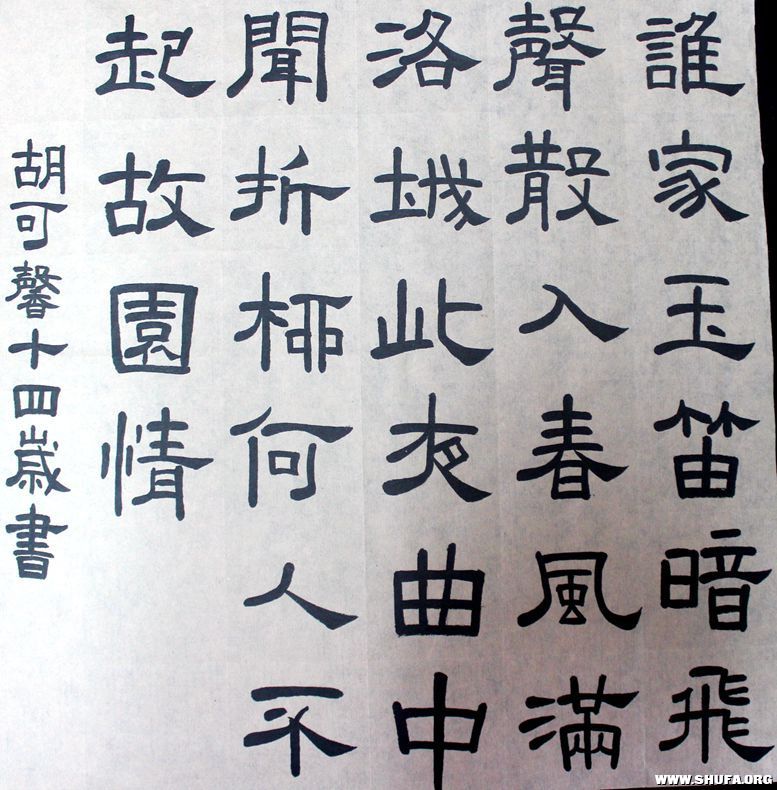 誰家玉笛暗飛
聲散入春風滿
洛城此夜曲中
聞折柳何人不
起故園情
胡可馨十四歲書
WWW.SHUFA.ORG